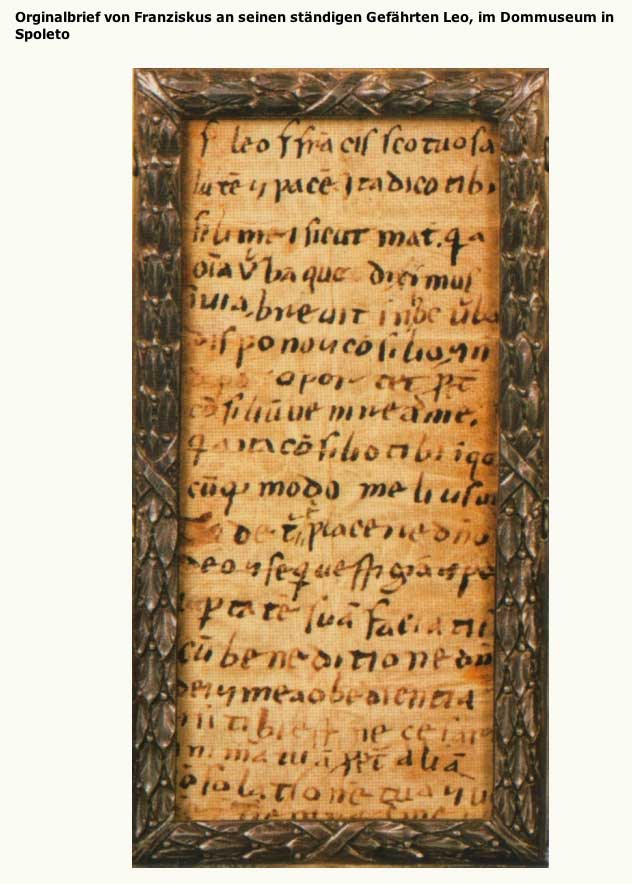 Orginalbrief von Franziskus an seinen ständigen Gefährten Leo, im Dommuseum in
Spoleto
f leo f frācisscotuo sa
lutē ⁊ pacē Ita dico tibi
fili mei sicut mat. qa
oīa v̄ba que diximus
ī uia, breuit v̄bo
dispono ⁊ cōsilio ⁊ n
opor p̄t
cōsiliū uenire ad me.
qa ita cōsilio tibi ī q
cūq modo melius ui
placere dn̄o
deo ⁊ seq uestigiā ⁊ po
uptatē suā faciatis
cū beneditione dn̄i
dei ⁊ mea obedientia
tibi ē ne
māi tuā p̄t aliā
cōsolationē tuā ⁊ u